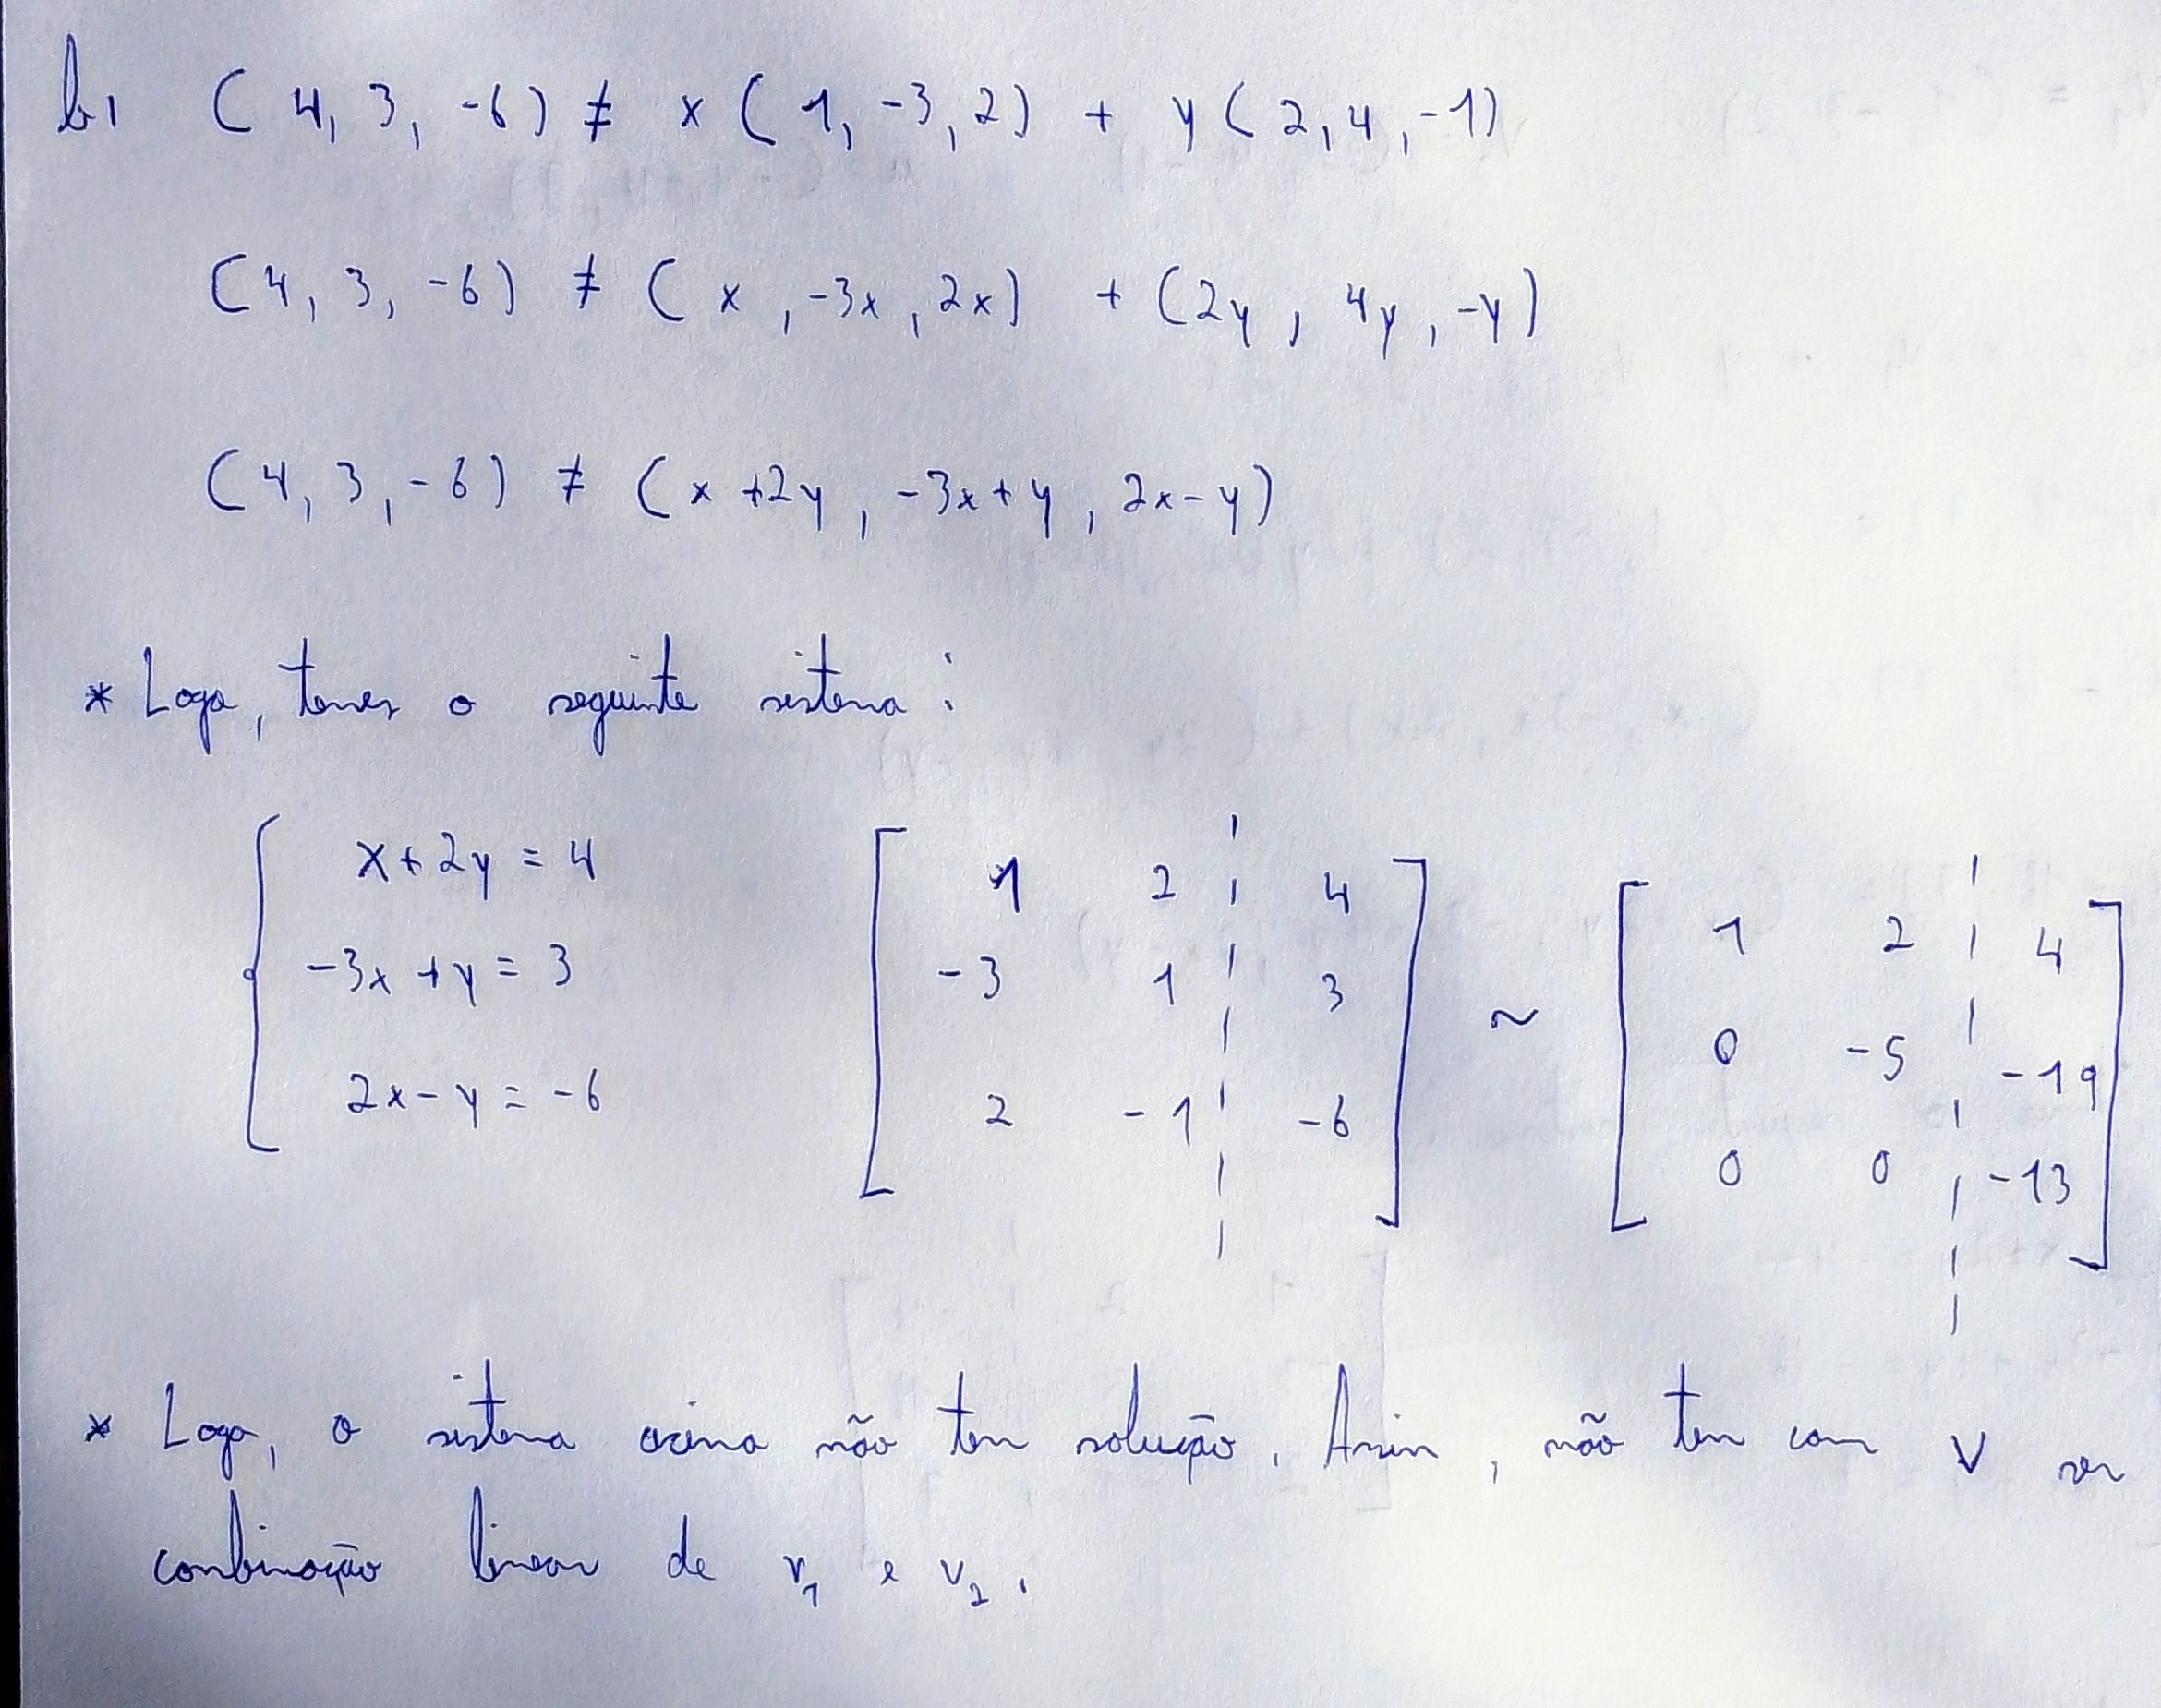 b) (4, 3, -6) ≠ x(1, -3, 2) + y(2, 4, -1)
(4, 3, -6) ≠ (x, -3x, 2x) + (2y, 4y, -y)
(4, 3, -6) ≠ (x+2y, -3x+y, 2x-y)
* Logo, temos o seguinte sistema:
x+2y = 4
-3x+y = 3
2x-y = -6
1 2 4
-3 1 3
2 -1 -6
~
1 2 4
0 -5 -19
0 0 -13
* Logo, o sistema acima não tem solução. Assim, não tem com V ser
combinação linear de v1 e v2.